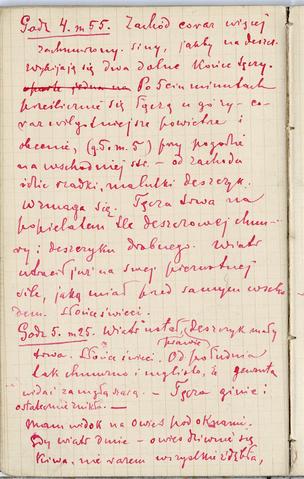 Godz 4. m 55. Zachód coraz więcej
zachmurzony. siny, jakby na deszcz
się dwa dolne końce tęczy.
Po 5ciu minutach
prześlicznie się łączą u góry - co-
raz wilgotniejsze powietrze i
obecnie, (g 5. m 5) przy pogodzie
na wschodniej str. - od zachodu
idzie rzadki, malutki deszczyk.
wzmaga się. Tęcza trwa na
popielatem tle deszczowej chmu-
ry i deszczyku drobnego. Wiatr
utracił już na swej pierwotnej
sile, jaką miał przed samym wscho-
dem. Słońce świeci.
Godz 5. m 25. Wiatr ustał, Deszczyk mały
prawie
trwa. Słońce świeci. Od południa
tak chmurno i mglisto, że
widać za mgłą szarą. - Tęcza ginie i
ostatecznie znikła. -
Mam widok na owies pod oknami.
Gdy wiatr dmie - owies dziwnie się
kiwa, nie razem wszystkie źdźbła,